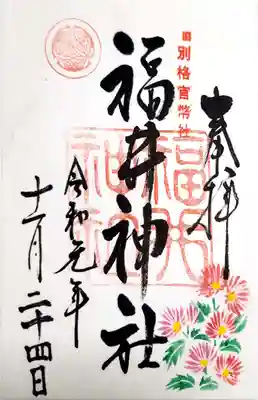 奉拝
旧別格官幣社
福井神社
福井神社
令和元年
十一月二十四日